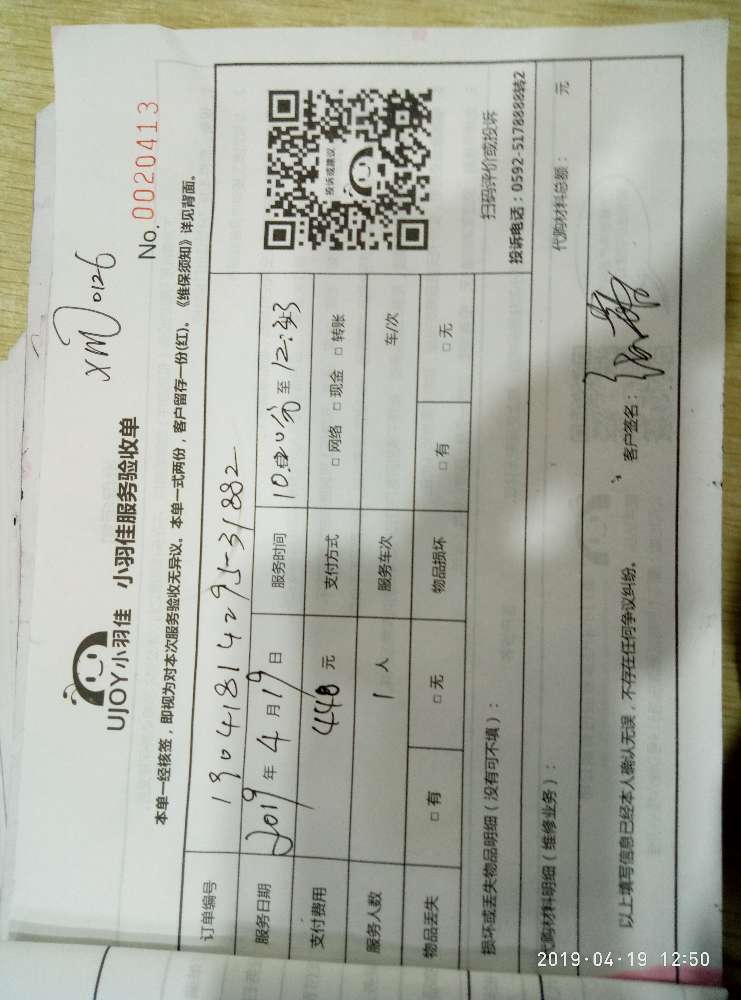 XM 0126
UJOY小羽佳 小羽佳服务验收单
No. 0020413
本单一经核签，即视为对本次服务验收无异议。本单一式两份，客户留存一份(红)。《维保须知》详见背面。
订单编号 19041814295-31882
服务日期 2019 年 4 月 19 日 服务时间 10:00分 至 12:33
支付费用 448 元 支付方式 □ 网络 □ 现金 □ 转账
服务人数 1 人 服务车次 车/次
物品丢失 □ 有 □ 无 物品损坏 □ 有 □ 无
投诉或建议
扫码评价或投诉
投诉电话：0592-5178888转2
损坏或丢失物品明细（没有可不填）：
代购材料明细（维修业务）： 代购材料总额： 元
以上填写信息已经本人确认无误，不存在任何争议纠纷。 客户签名：
2019·04·19 12:50